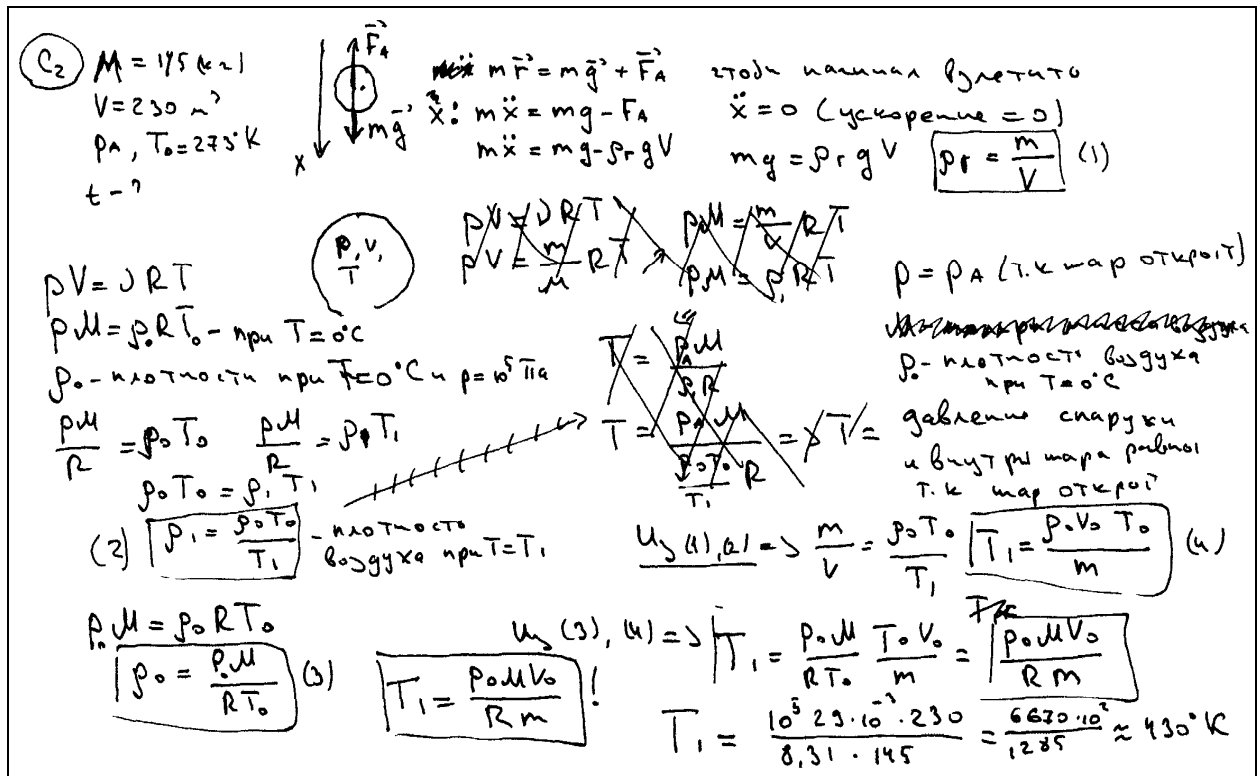 C₂ M = 145 (кг)
V = 230 м³
pА, T₀ = 273°K
t - ?
F⃗А
mg⃗
x
m r̈⃗ = mg⃗ + F⃗А
x: mẍ = mg - FА
mẍ = mg - ρг g V
чтобы начинал взлетать
ẍ = 0 (ускорение = 0)
mg = ρг g V ρг = m/V (1)
p, V, T
pV = νRT
pV = m/μ RT
pμ = m/V RT
pμ = ρ₁RT
pV = νRT
pμ = ρ₀RT₀ - при T = 0°C
ρ₀ - плотности при T = 0°C и p = 10⁵ Па
pμ/R = ρ₀T₀ pμ/R = ρ₁T₁
ρ₀T₀ = ρ₁T₁
(2) ρ₁ = ρ₀T₀/T₁ - плотность
воздуха при T = T₁
T = pАμ/ρ₁R
T = pАμ/(ρ₀T₀/T₁ R) = > T =
p = pА (т.к шар открыт)
ρ₀ - плотность воздуха
при T = 0°C
давление снаружи
и внутри шара равны
т.к шар открыт
Из (1), (2) => m/V = ρ₀T₀/T₁ T₁ = ρ₀V₀T₀/m (4)
p₀μ = ρ₀RT₀
ρ₀ = p₀μ/RT₀ (3)
Из (3), (4) => T₁ = p₀μ/RT₀ T₀V₀/m = p₀μV₀/Rm
T₁ = p₀μV₀/Rm !
T₁ = 10⁵ 29·10⁻³·230/8,31·145 = 6670·10²/1285 ≈ 430°K